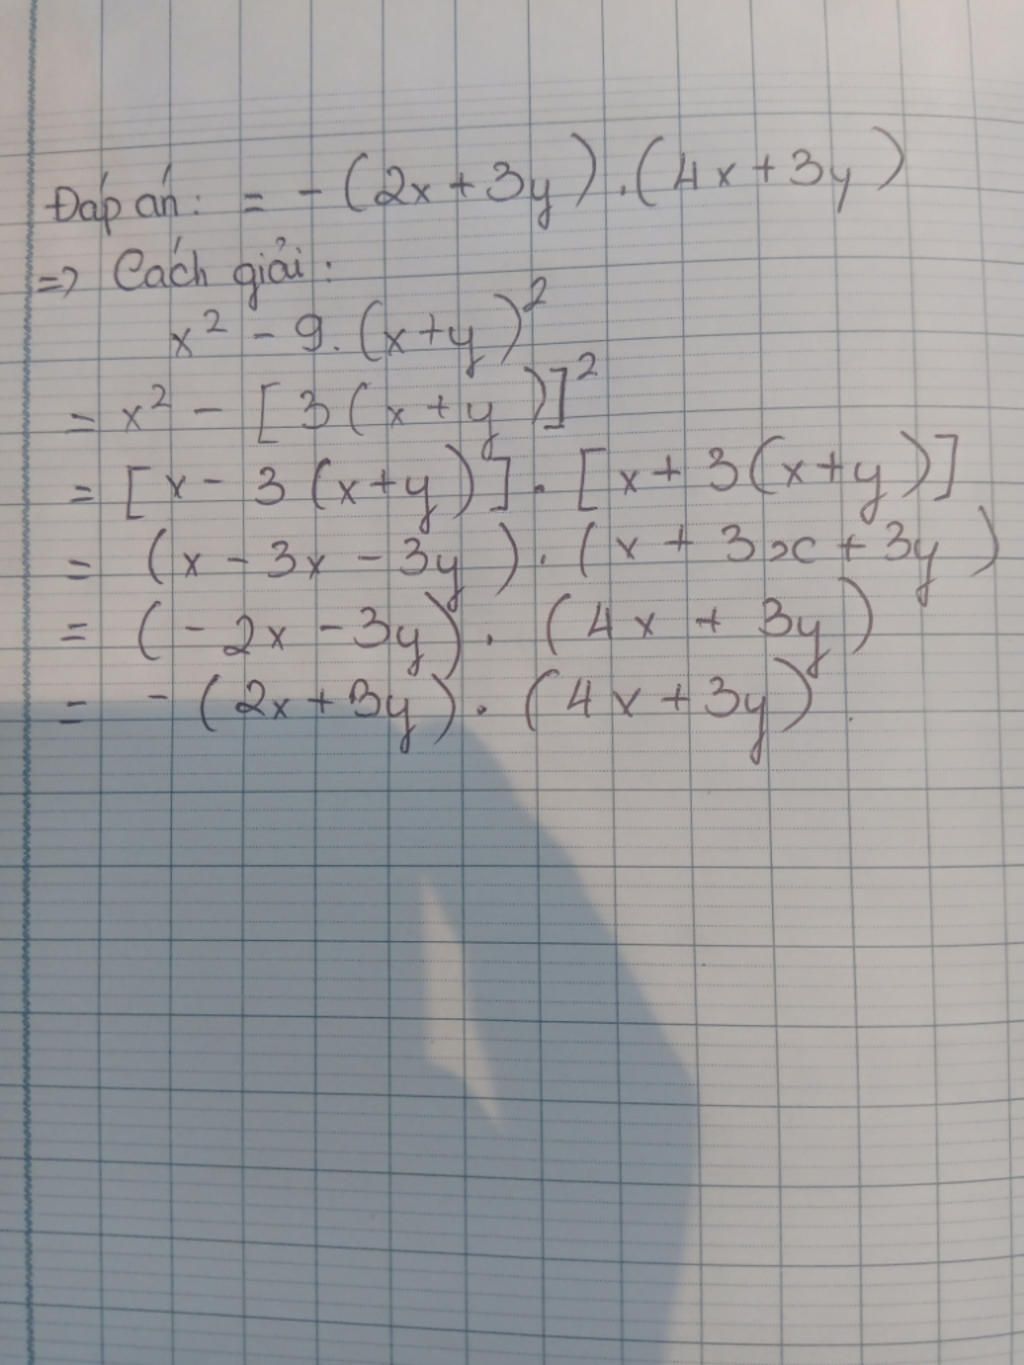 Đáp án: = - (2x + 3y) . (4x + 3y)
=> Cách giải:
x² - 9. (x+y)²
= x² - [3(x+y)]²
= [x - 3(x+y)] . [x + 3(x+y)]
= (x - 3x - 3y) . (x + 3x + 3y)
= (-2x - 3y) . (4x + 3y)
= - (2x + 3y) . (4x + 3y)